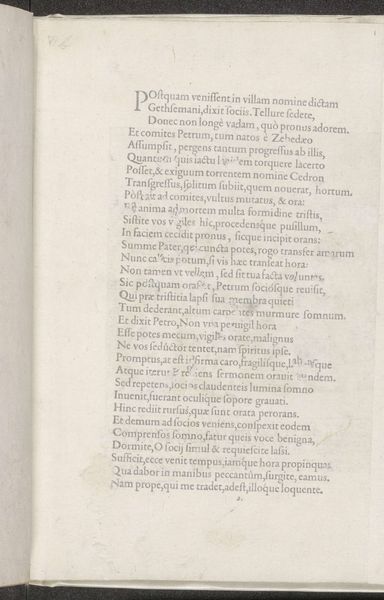 Postquam venissent in villam nomine dictam
Gethsemani, dixit sociis. Tellure sedete,
Donec non longè vadam, quò pronus adorem.
Et comites Petrum, tum natos è Zebedæo
Assumpsit, pergens tantum progressus ab illis,
Quantum quis iactu lapidem torquere lacerto
Posset, & exiguum torrentem nomine Cedron
Transgressus, solitum subiit, quem nouerat, hortum.
Pòst ait ad comites, vultus mutatus, & ora:
anima ad mortem multa formidine tristis,
Sistite vos vigiles hic, procedensque pusillum,
In faciem cecidit pronus, sicque incipit orans:
Summe Pater, qui cuncta potes, rogo transfer amarum
Nunc calicis potum, si vis hæc transeat hora:
Non tamen vt vellem, sed sit tua facta voluntas.
Sic postquam orasset, Petrum sociósque reuisit,
Qui præ tristitia lapsi sua membra quieti
Tum dederant, altum carpentes murmure somnum.
Et dixit Petro, Non vna peruigil hora
Esse potes mecum, vigiles orate, malignus
Ne vos seductor tentet, nam spiritus ipse.
Promptus, at est infirma caro, fragilisque,
Atque iterum rediens sermonem orauit eundem.
Sed repetens, socios claudenteis lumina somno
Inuenit, fuerant oculique sopore grauati.
Hinc rediit rursus, quæ sunt orata perorans.
Et demum ad socios veniens, conspexit eodem
Compressos somno, fatur queis voce benigna,
Dormite, O socij simul & requiescite lassi.
Sufficit, ecce venit tempus, iamque hora propinquat
Qua dabor in manibus peccantûm, surgite, eamus.
Nam prope, qui me tradet, adest, illoque loquente.